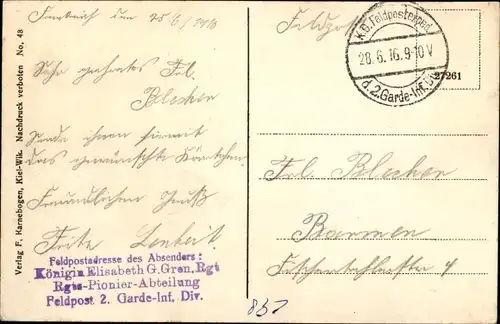 Verlag F. Karnebogen, Kiel-Wik. Nachdruck verboten No. 48
den 28/6/1916
Sehr geehrtes Frl.
Blecher
Sende ihnen hiermit
das gewünschte Kärtchen
Freundlichen Gruß
Fritz
Feldpostadresse des Absenders:
Königin Elisabeth G. Gren. Rgt
Rgts-Pionier-Abteilung
Feldpost 2. Garde-Inf. Div.
Feldpost
K.D. Feldpostexped.
28.6.16.9-10 V
d. 2. Garde-Inf. Div.
27261
Frl. Blecher
Barmen
4
857